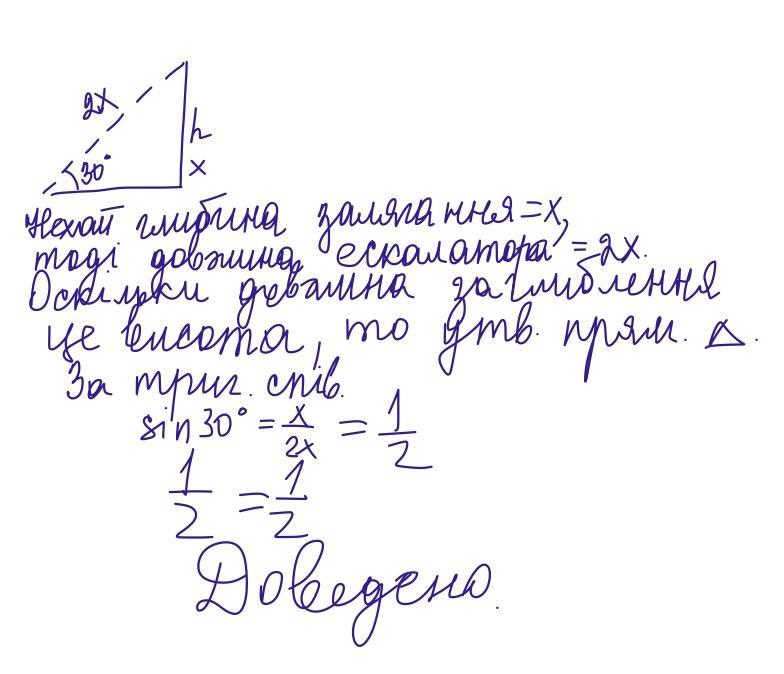 2x
h
30°
x
Нехай глибина залягання = x,
тоді довжина ескалатора = 2x.
Оскільки довжина заглиблення
це висота, то утв. прям. Δ.
За триг. спів.
sin 30° = x/2x = 1/2
1/2 = 1/2
Доведено.